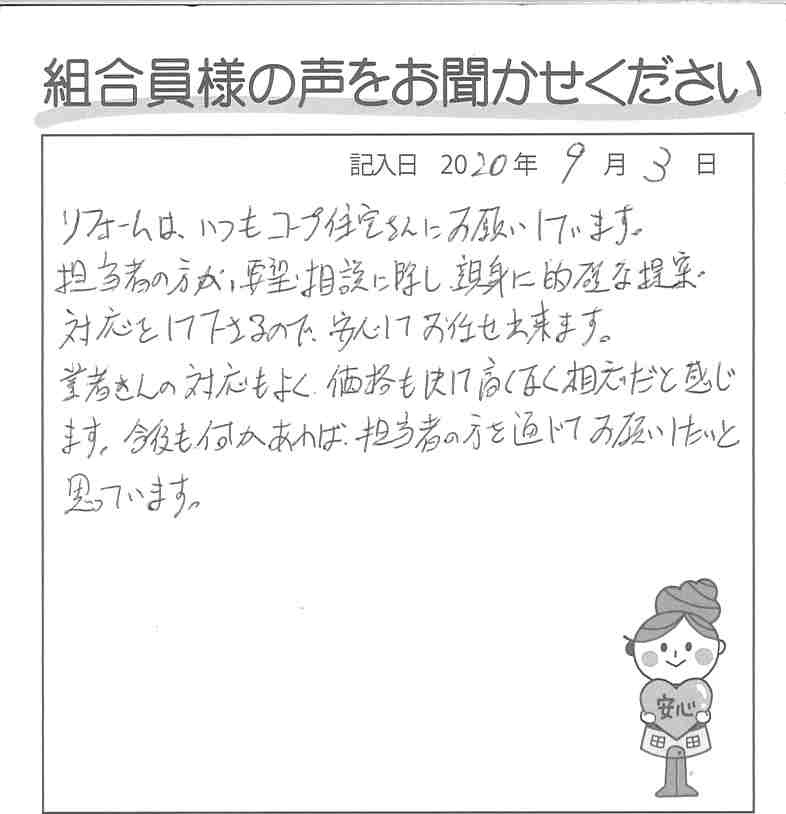 組合員様の声をお聞かせください
記入日 2020年 9月 3日
リフォームは、いつもコープ住宅さんにお願いしています。
担当者の方が、要望・相談に際し、親身に的確な提案・
対応をして下さるので、安心してお任せ出来ます。
業者さんの対応もよく、価格も決して高くなく相応だと感じ
ます。今後も何かあれば、担当者の方を通じてお願いしたいと
思っています。
安心